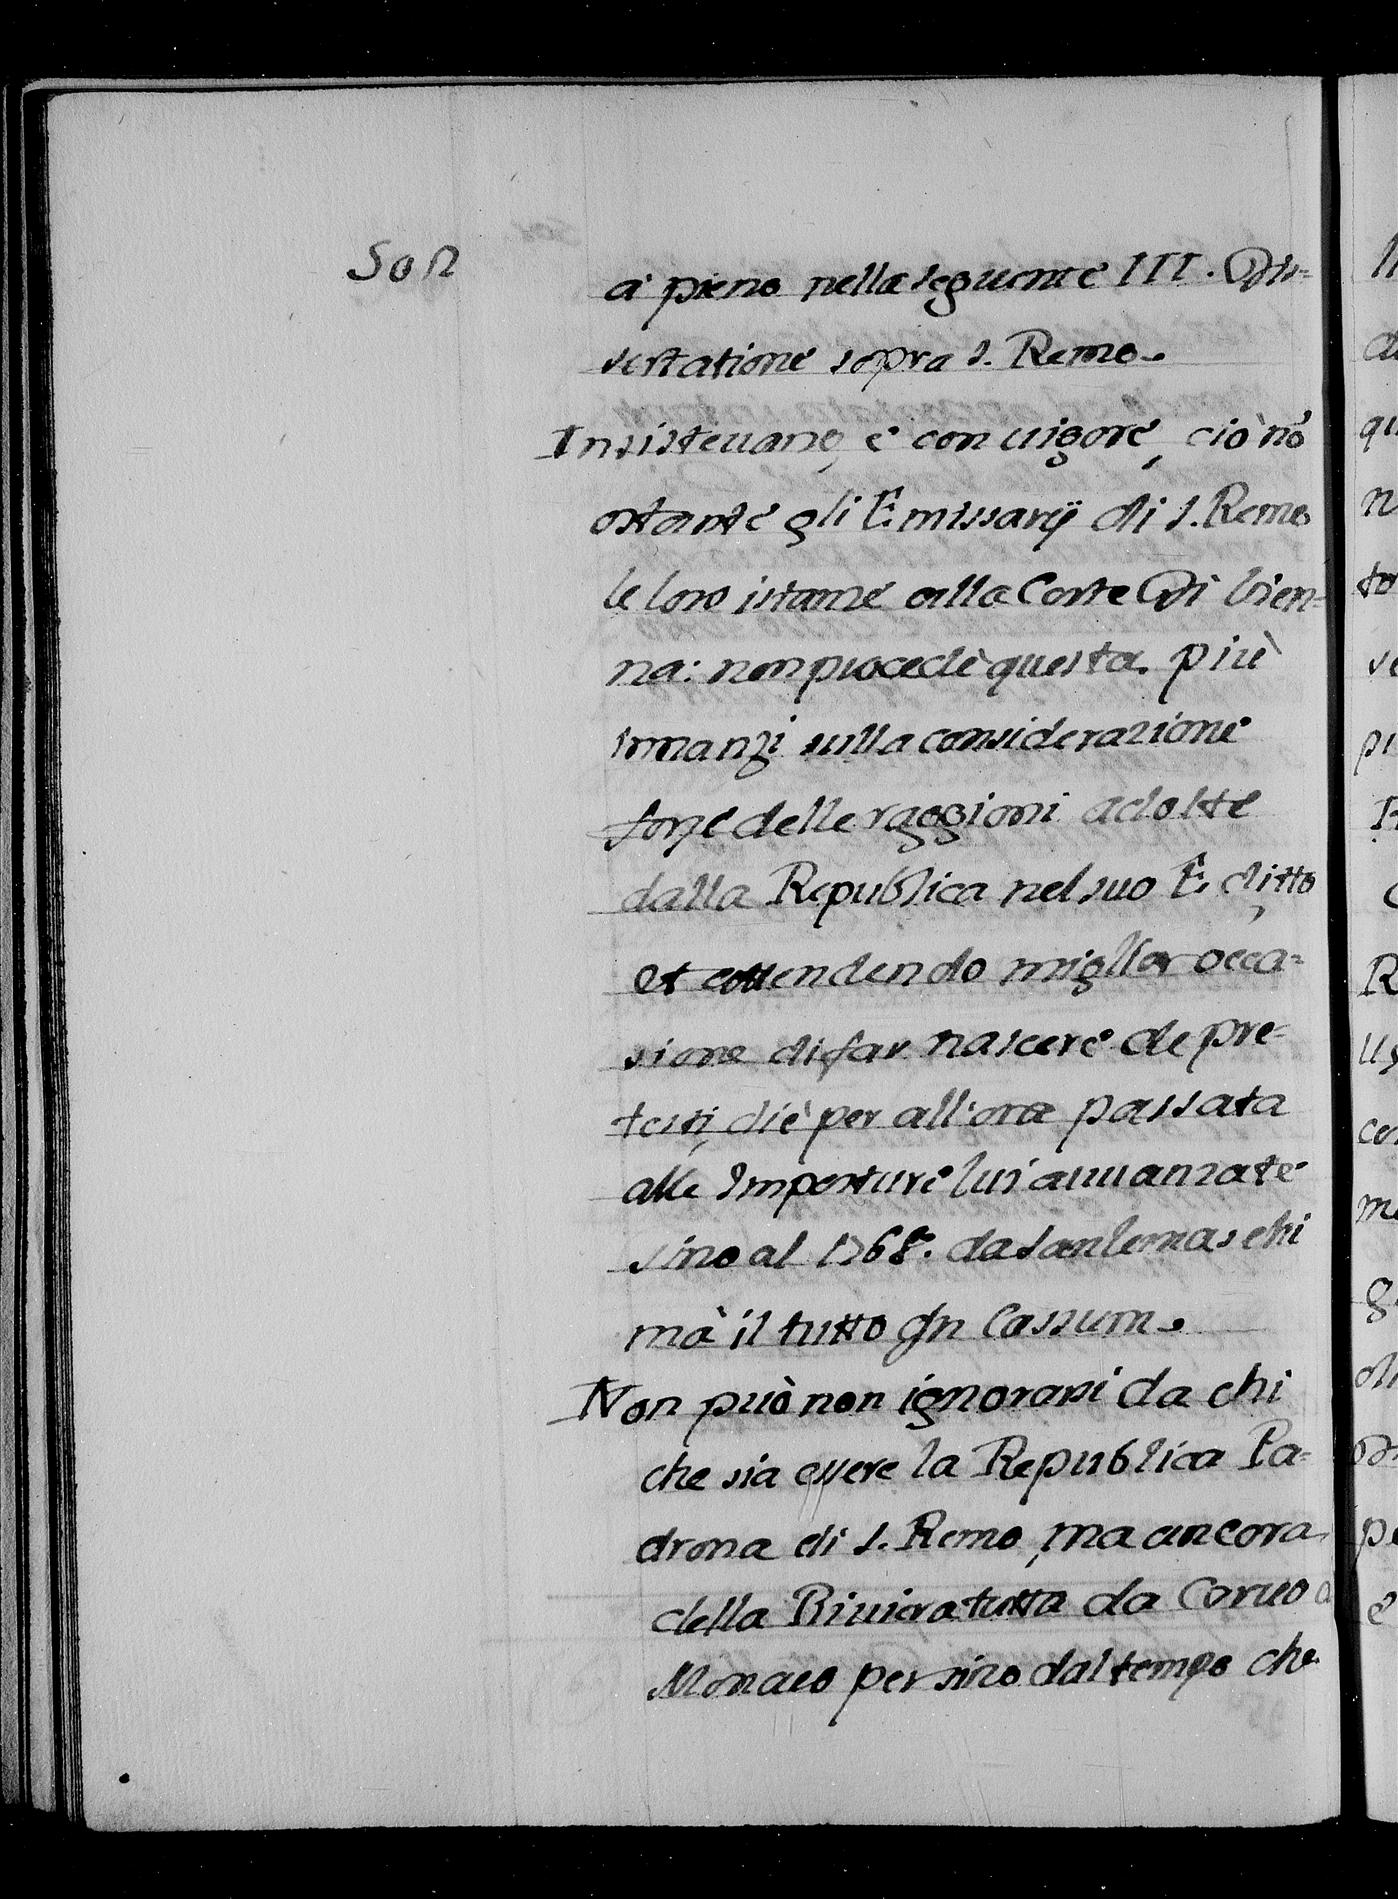 502
a' pieno nella seguente III. Dis=
sertatione sopra S. Remo.
Insisteuano, e con uigore, ciò nō
ostante gli Emissarij di S. Remo
le loro istanze alla Corte Di Vien=
na: non procedè questa più
innanzi sulla considerazione
forse delle raggioni adotte
dalla Republica nel suo Editto,
et attendendo miglior occa=
sione di far nascere de pre=
testi, diè per all'ora passata
alle Imposture lui auuanzate
sino al 1768. da Sanlemaschi
mà il tutto In Cassum.
Non può non ignorarsi da chi
che sia essere la Republica Pa=
drona di S. Remo, ma ancora
della Riuiera tutta da Coruo a
Monaco persino dal tempo che